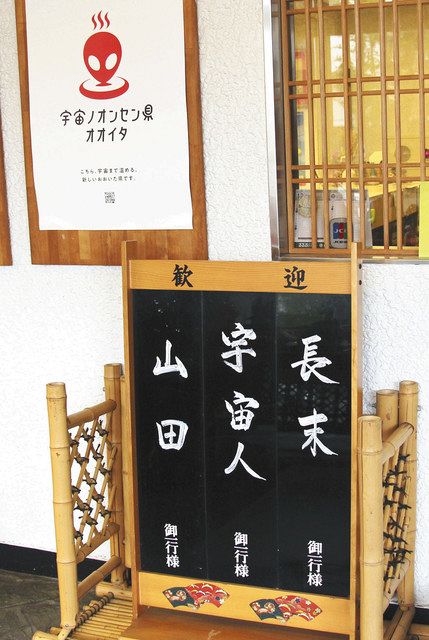 宇宙ノオンセン県
オオイタ
こちら、宇宙まで温める。
新しいおおいた県です。
歓迎
長末 御一行様
宇宙人 御一行様
山田 御一行様
JCB